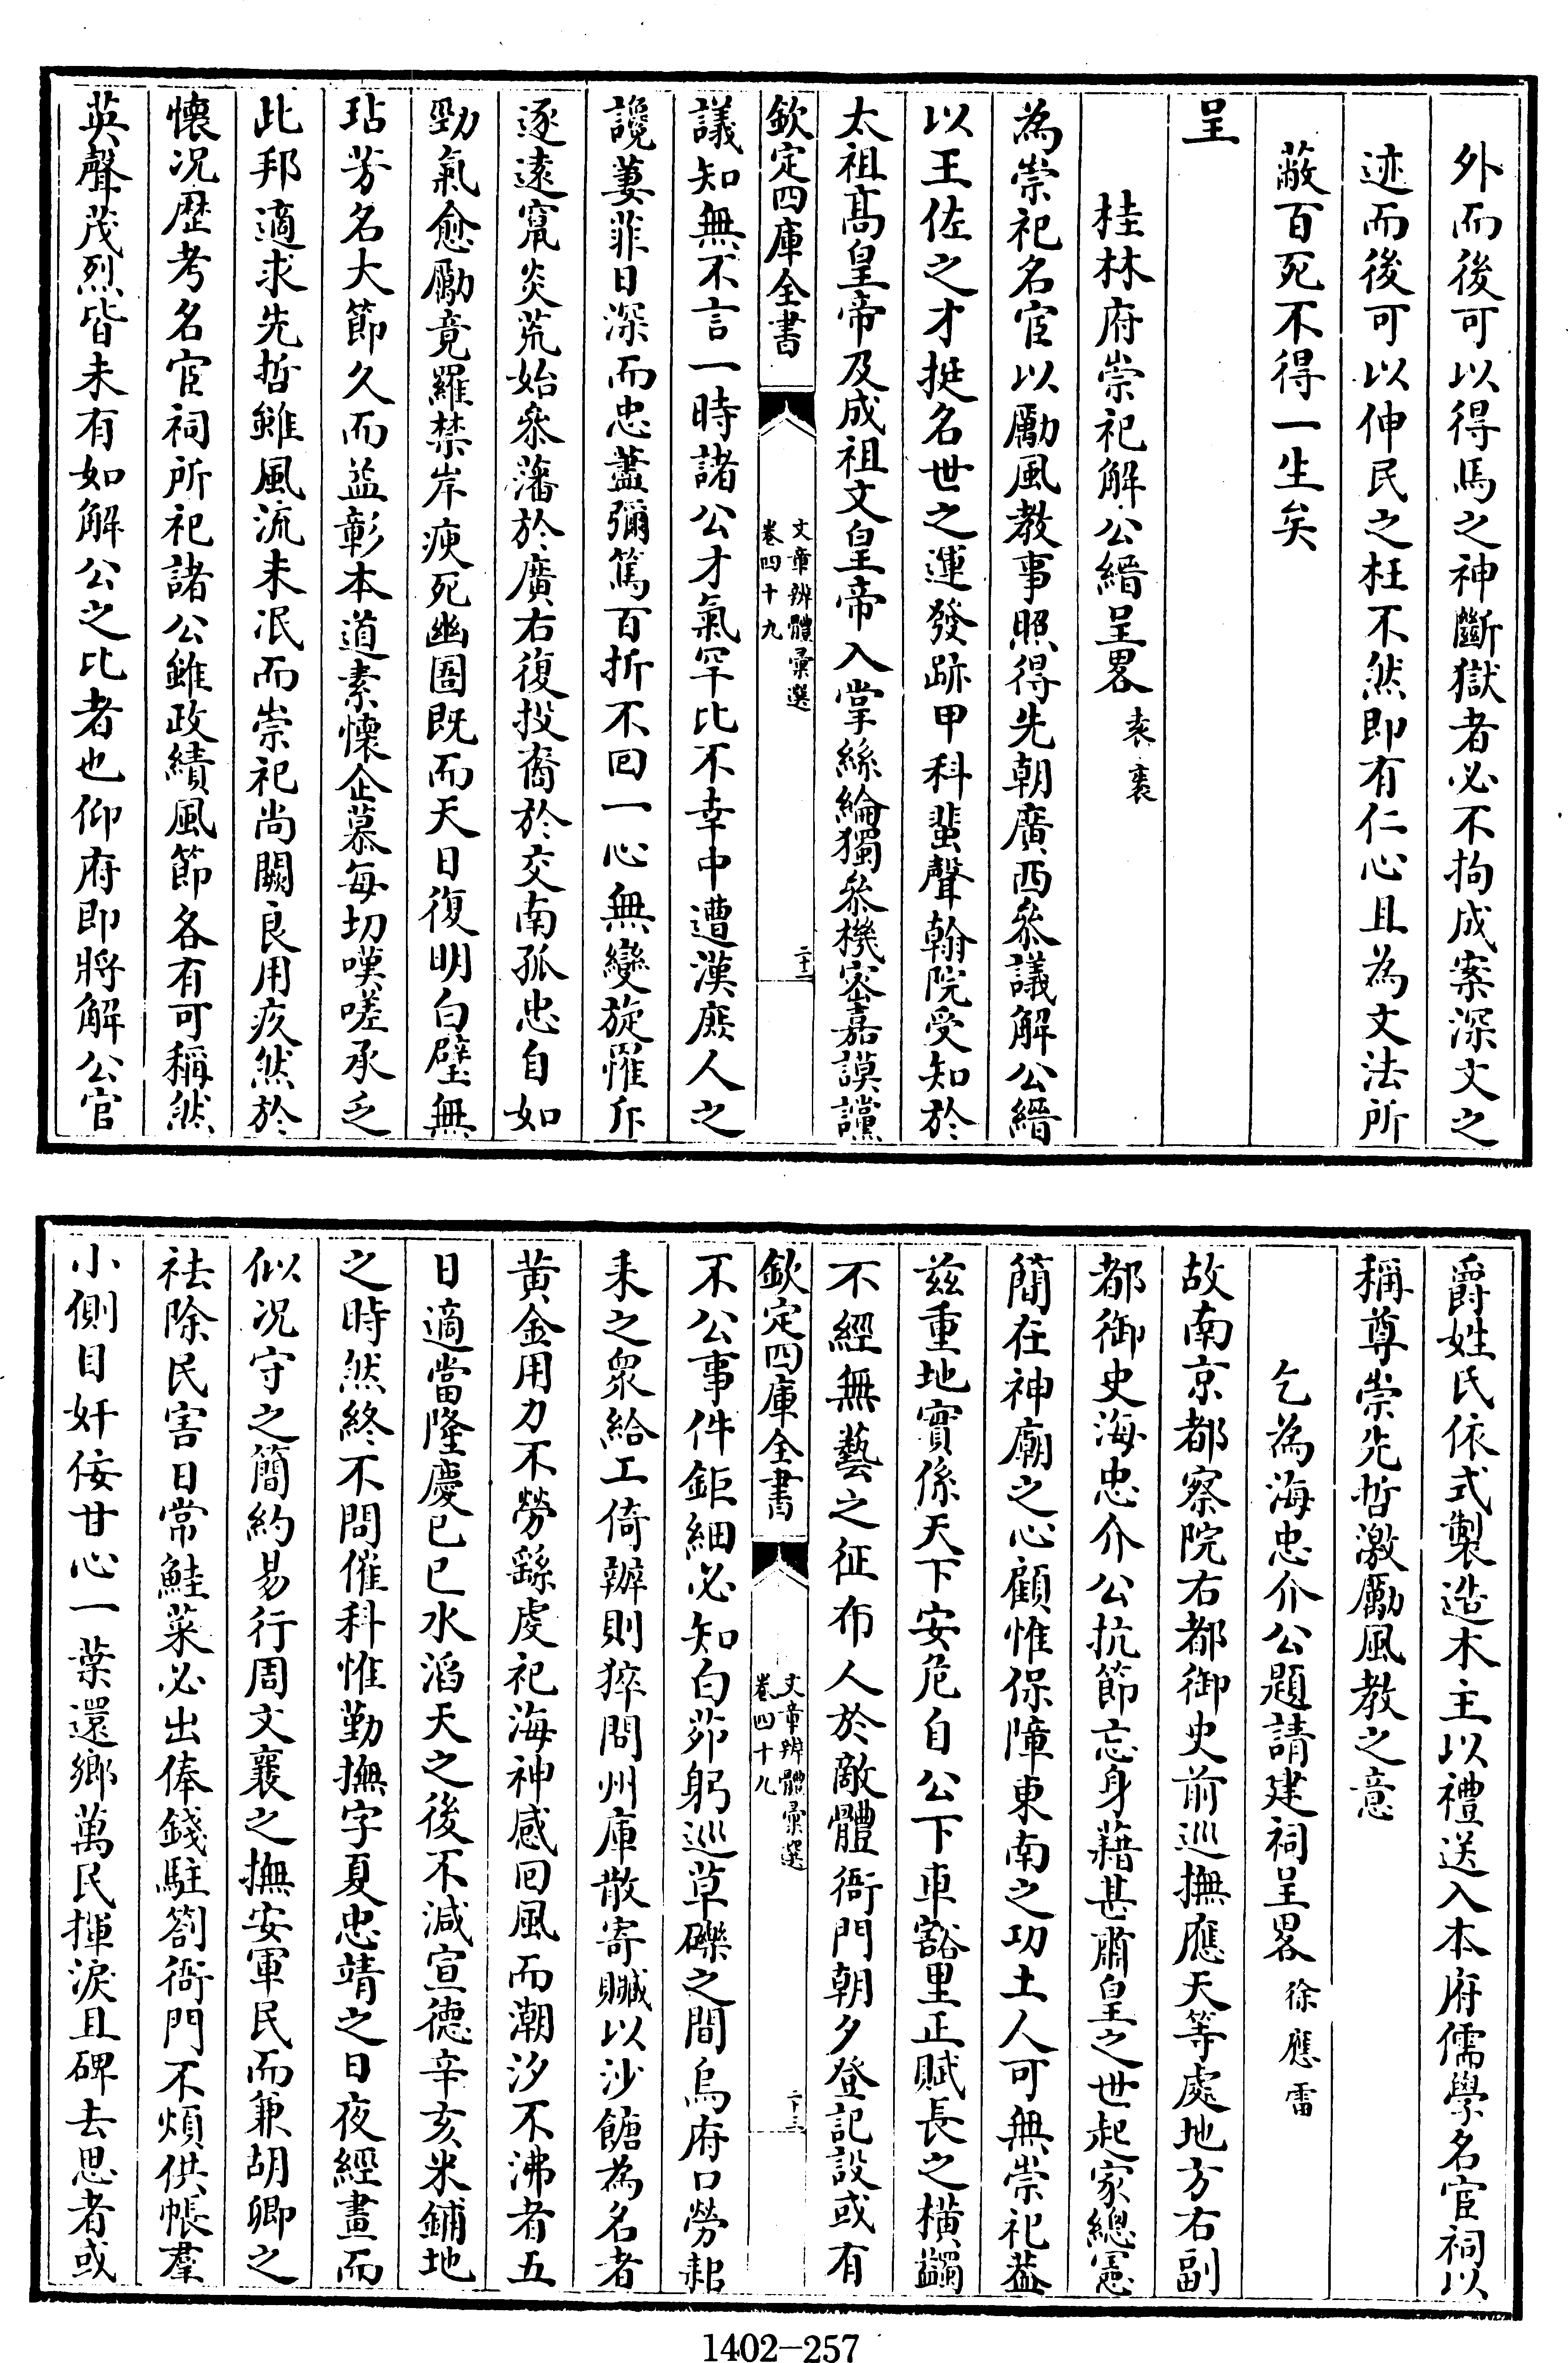 外而後可以得馬之神斷獄者必不拘成案深文之
迹而後可以伸民之枉不然即有仁心且為文法所
蔽百死不得一生矣
呈
桂林府崇祀解公縉呈畧 袁袠
為崇祀名宦以勵風教事照得先朝廣西叅議解公縉
以王佐之才挺名世之運發跡甲科蜚聲翰院受知於
太祖高皇帝及成祖文皇帝入掌絲綸獨叅機密嘉謨讜
欽定四庫全書
文章辨體彚選
卷四十九
二十二
議知無不言一時諸公才氣罕比不幸中遭漢庶人之
讒萋菲日深而忠藎彌篤百折不回一心無變旋罹斥
逐遠竄炎荒始叅藩於廣右復投裔於交南孤忠自如
勁氣愈勵竟羅禁岸瘐死幽圄既而天日復明白璧無
玷芳名大節久而益彰本道素懷企慕每切嘆嗟承乏
此邦適求先哲雖風流未泯而崇祀尚闕良用疚然於
懷况歴考名宦祠所祀諸公雖政績風節各有可稱然
英聲茂烈皆未有如解公之比者也仰府即將解公官
爵姓氏依式製造木主以禮送入本府儒學名宦祠以
稱尊崇先哲激勵風教之意
乞為海忠介公題請建祠呈畧 徐應雷
故南京都察院右都御史前巡撫應天等處地方右副
都御史海忠介公抗節忘身藉甚肅皇之世起家總憲
簡在神廟之心顧惟保障東南之功土人可無崇祀葢
兹重地實係天下安危自公下車豁里正賦長之橫蠲
不經無藝之征布人於敵體衙門朝夕登記設或有
欽定四庫全書
文章辨體彚選
卷四十九
二十三
不公事件鉅細必知白茆躬巡草礫之間烏府口勞耜
耒之衆給工倚辦則猝問州庫散寄贓以沙餹為名者
黄金用力不勞繇虔祀海神感回風而潮汐不沸者五
日適當隆慶已巳水滔天之後不減宣德辛亥米鋪地
之時然終不問催科惟勤撫字夏忠靖之日夜經畫而
似况守之簡約易行周文襄之撫安軍民而兼胡卿之
祛除民害日常鮭菜必出俸錢駐劄衙門不煩供帳羣
小側目奸佞甘心一葉還鄉萬民揮淚且碑去思者或
1402-257